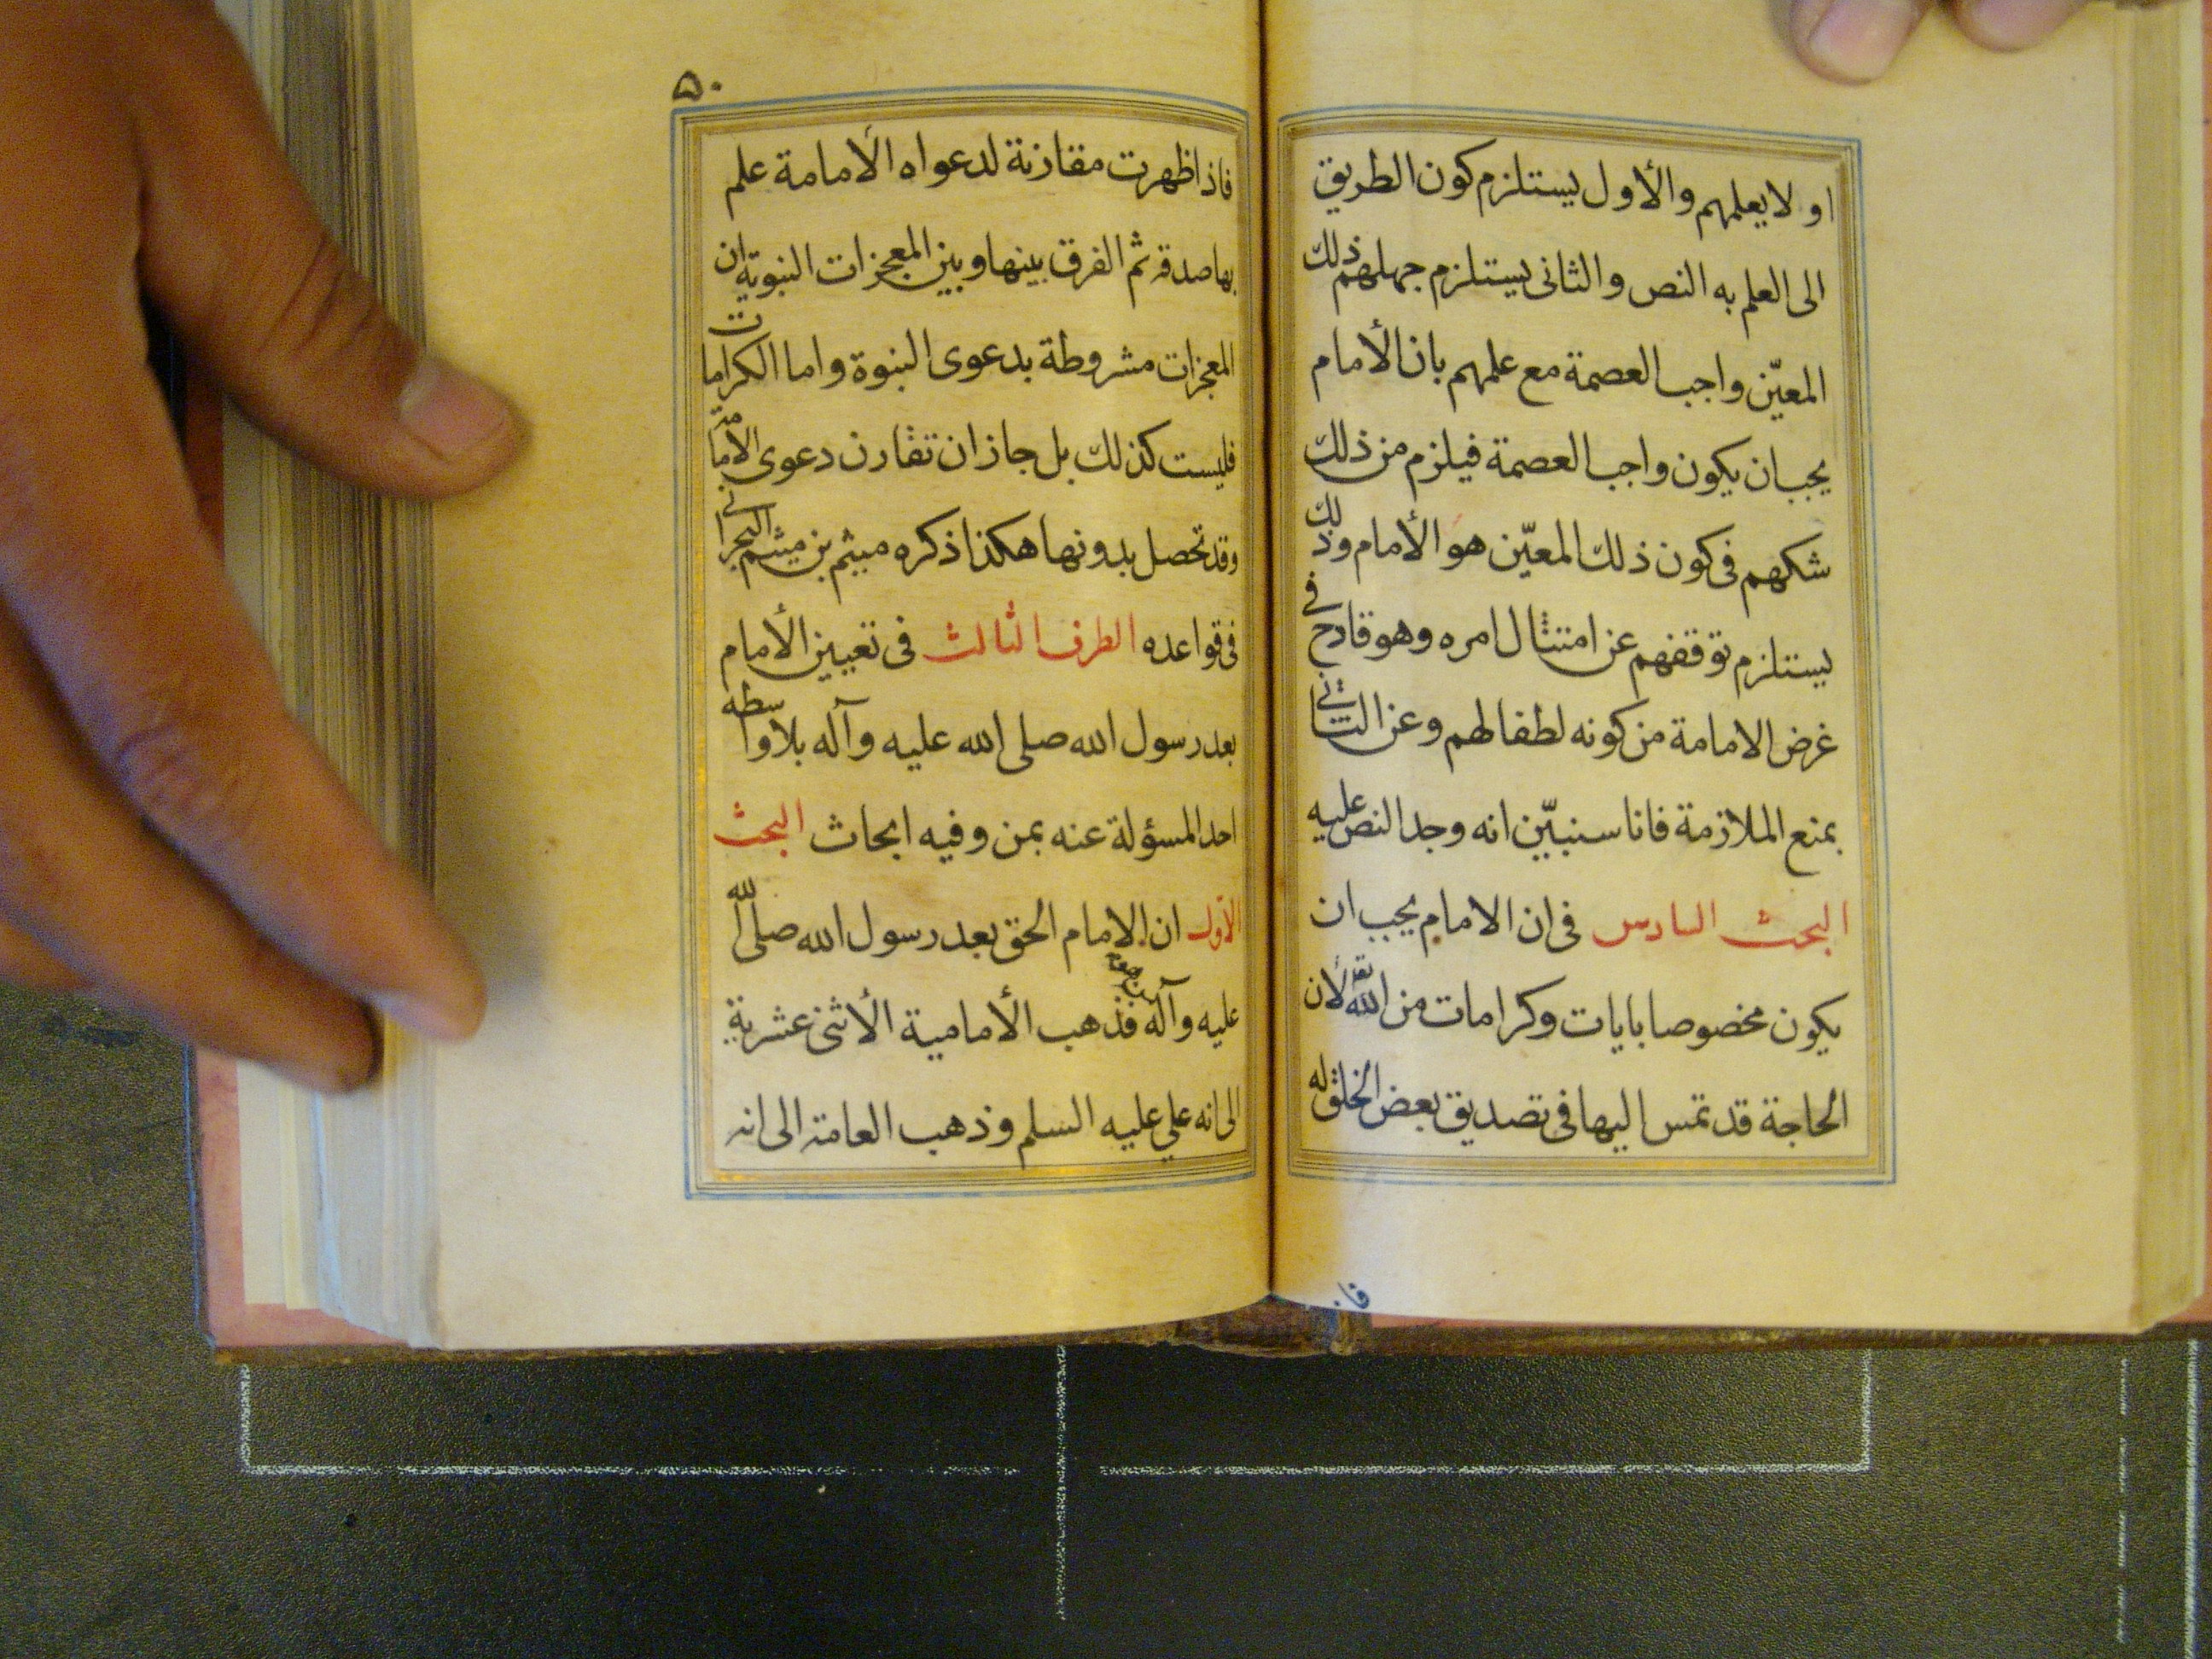 او لا يعلمهم والأول يستلزم كون الطريق
الى العلم به النص والثانى يستلزم جهلهم ذلك
المعيّن واجب العصمة مع علمهم بان الأمام
يجب ان يكون واجب العصمة فيلزم من ذلك
شكهم فى كون ذلك المعيّن هو الأمام وذلك
يستلزم توقفهم عن امتثال امره وهو قادح فى
غرض الامامة من كونه لطفا لهم وعن الثانى
بمنع الملازمة فانا سنبيّن انه وجد النص عليه
البحث السادس فى ان الامام يجب ان
يكون مخصوصا بايات وكرامات من الله تعا لأن
الحاجة قد تمس اليها فى تصديق بعض الخلق له
فا
۵۰
فاذا ظهرت مقارنة لدعواه الأمامة علم
بها صدقه ثم الفرق بينها وبين المعجزات النبوية ان
المعجزات مشروطة بدعوى النبوة واما الكرامات
فليست كذلك بل جاز ان تقارن دعوى الأمامة
وقد تحصل بدونها هكذا ذكره ميثم بن ميثم البحرانى
فى قواعده الطرف الثالث فى تعيين الأمام
بعد رسول الله صلى الله عليه وآله بلا واسطه
احد المسؤلة عنه بمن وفيه ابحاث البحث
الأول ان الامام الحق بعد رسول الله صلى الله
عليه وآله فذهب الأمامية الأثنى عشرية
الى انه علي عليه السلم وذهب العامة الى انه